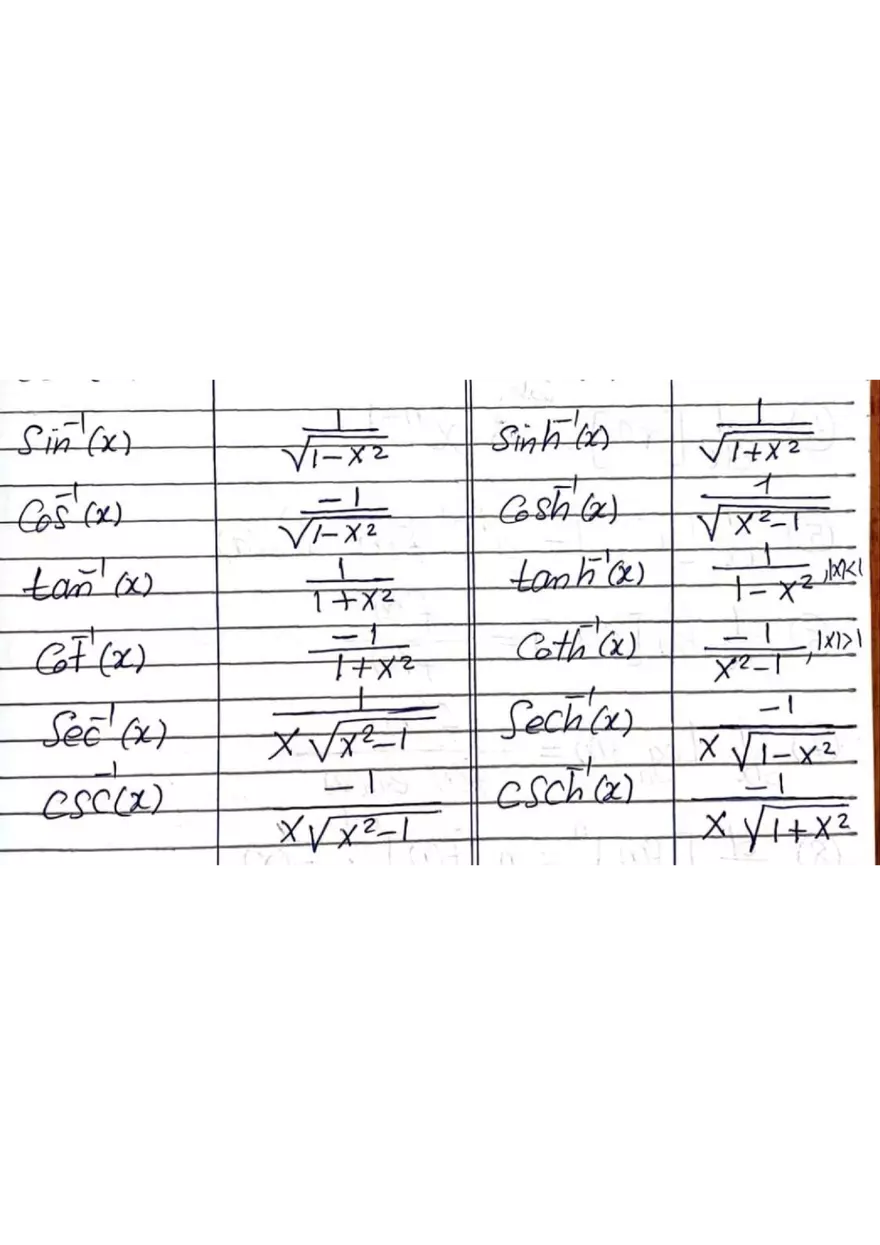 Sin⁻¹(x) 1/√(1-x²) Sinh⁻¹(x) 1/√(1+x²)
Cos⁻¹(x) -1/√(1-x²) Cosh⁻¹(x) 1/√(x²-1)
tan⁻¹(x) 1/(1+x²) tanh⁻¹(x) 1/(1-x²), |x|<1
Cot⁻¹(x) -1/(1+x²) Coth⁻¹(x) -1/(x²-1), |x|>1
Sec⁻¹(x) 1/(x√(x²-1)) Sech⁻¹(x) -1/(x√(1-x²))
CSC⁻¹(x) -1/(x√(x²-1)) CSCh⁻¹(x) -1/(x√(1+x²))